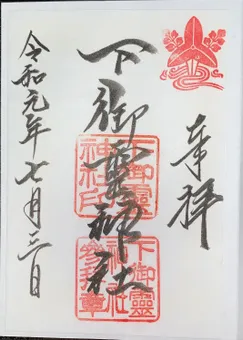 奉拝
下御靈神社
令和元年七月三日
下御靈
神社印
下御靈
神社
参拝章